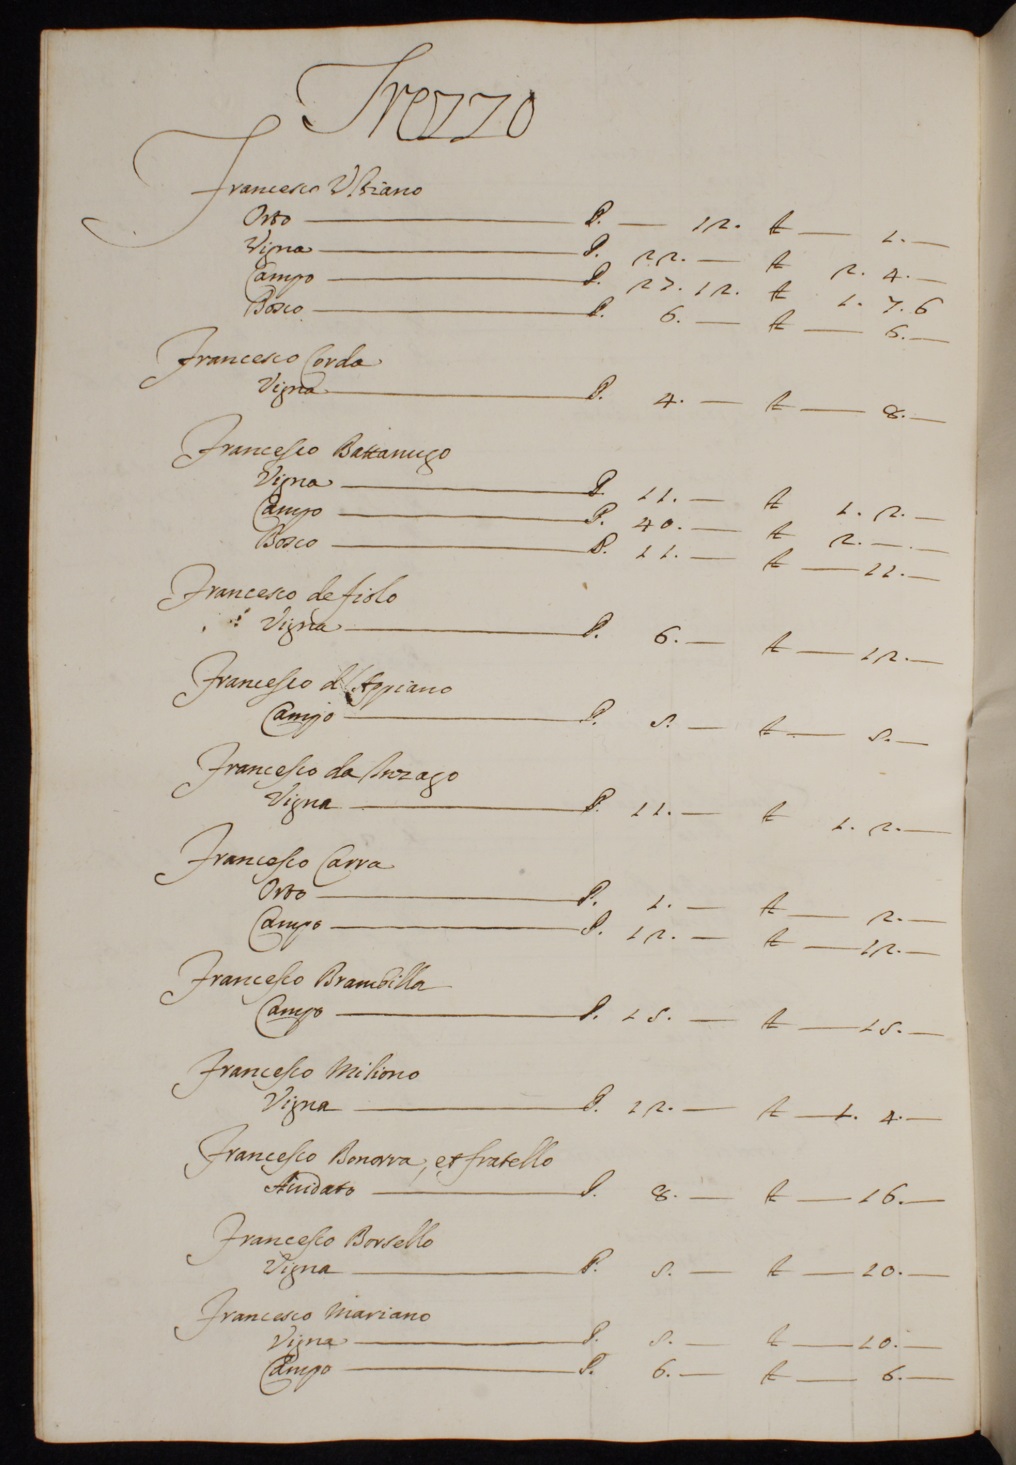 Trezzo
Francesco Vbiano
Orto P. — 12. ₶ — 1. —
Vigna P. 22. — ₶ 2. 4. —
Campo P. 27. 12. ₶ 1. 7. 6
Bosco P. 6. — ₶ — 6. —
Francesco Corda
Vigna P. 4. — ₶ — 8. —
Francesco Battanugo
Vigna P. 11. — ₶ 1. 2. —
Campo P. 40. — ₶ 2. — . —
Bosco P. 11. — ₶ — 11. —
Francesco de fiolo
Vigna P. 6. — ₶ — 12. —
Francesco d'Appiano
Campo P. 5. — ₶ — 5. —
Francesco da Inzago
Vigna P. 11. — ₶ 1. 2. —
Francesco Carra
Orto P. 1. — ₶ — 2. —
Campo P. 12. — ₶ — 12. —
Francesco Brambilla
Campo P. 15. — ₶ — 15. —
Francesco Miliono
Vigna P. 12. — ₶ — 1. 4. —
Francesco Bonorra, et fratello
Auidato P. 8. — ₶ — 16. —
Francesco Borsello
Vigna P. 5. — ₶ — 10. —
Francesco Mariano
Vigna P. 5. — ₶ — 10. —
Campo P. 6. — ₶ — 6. —